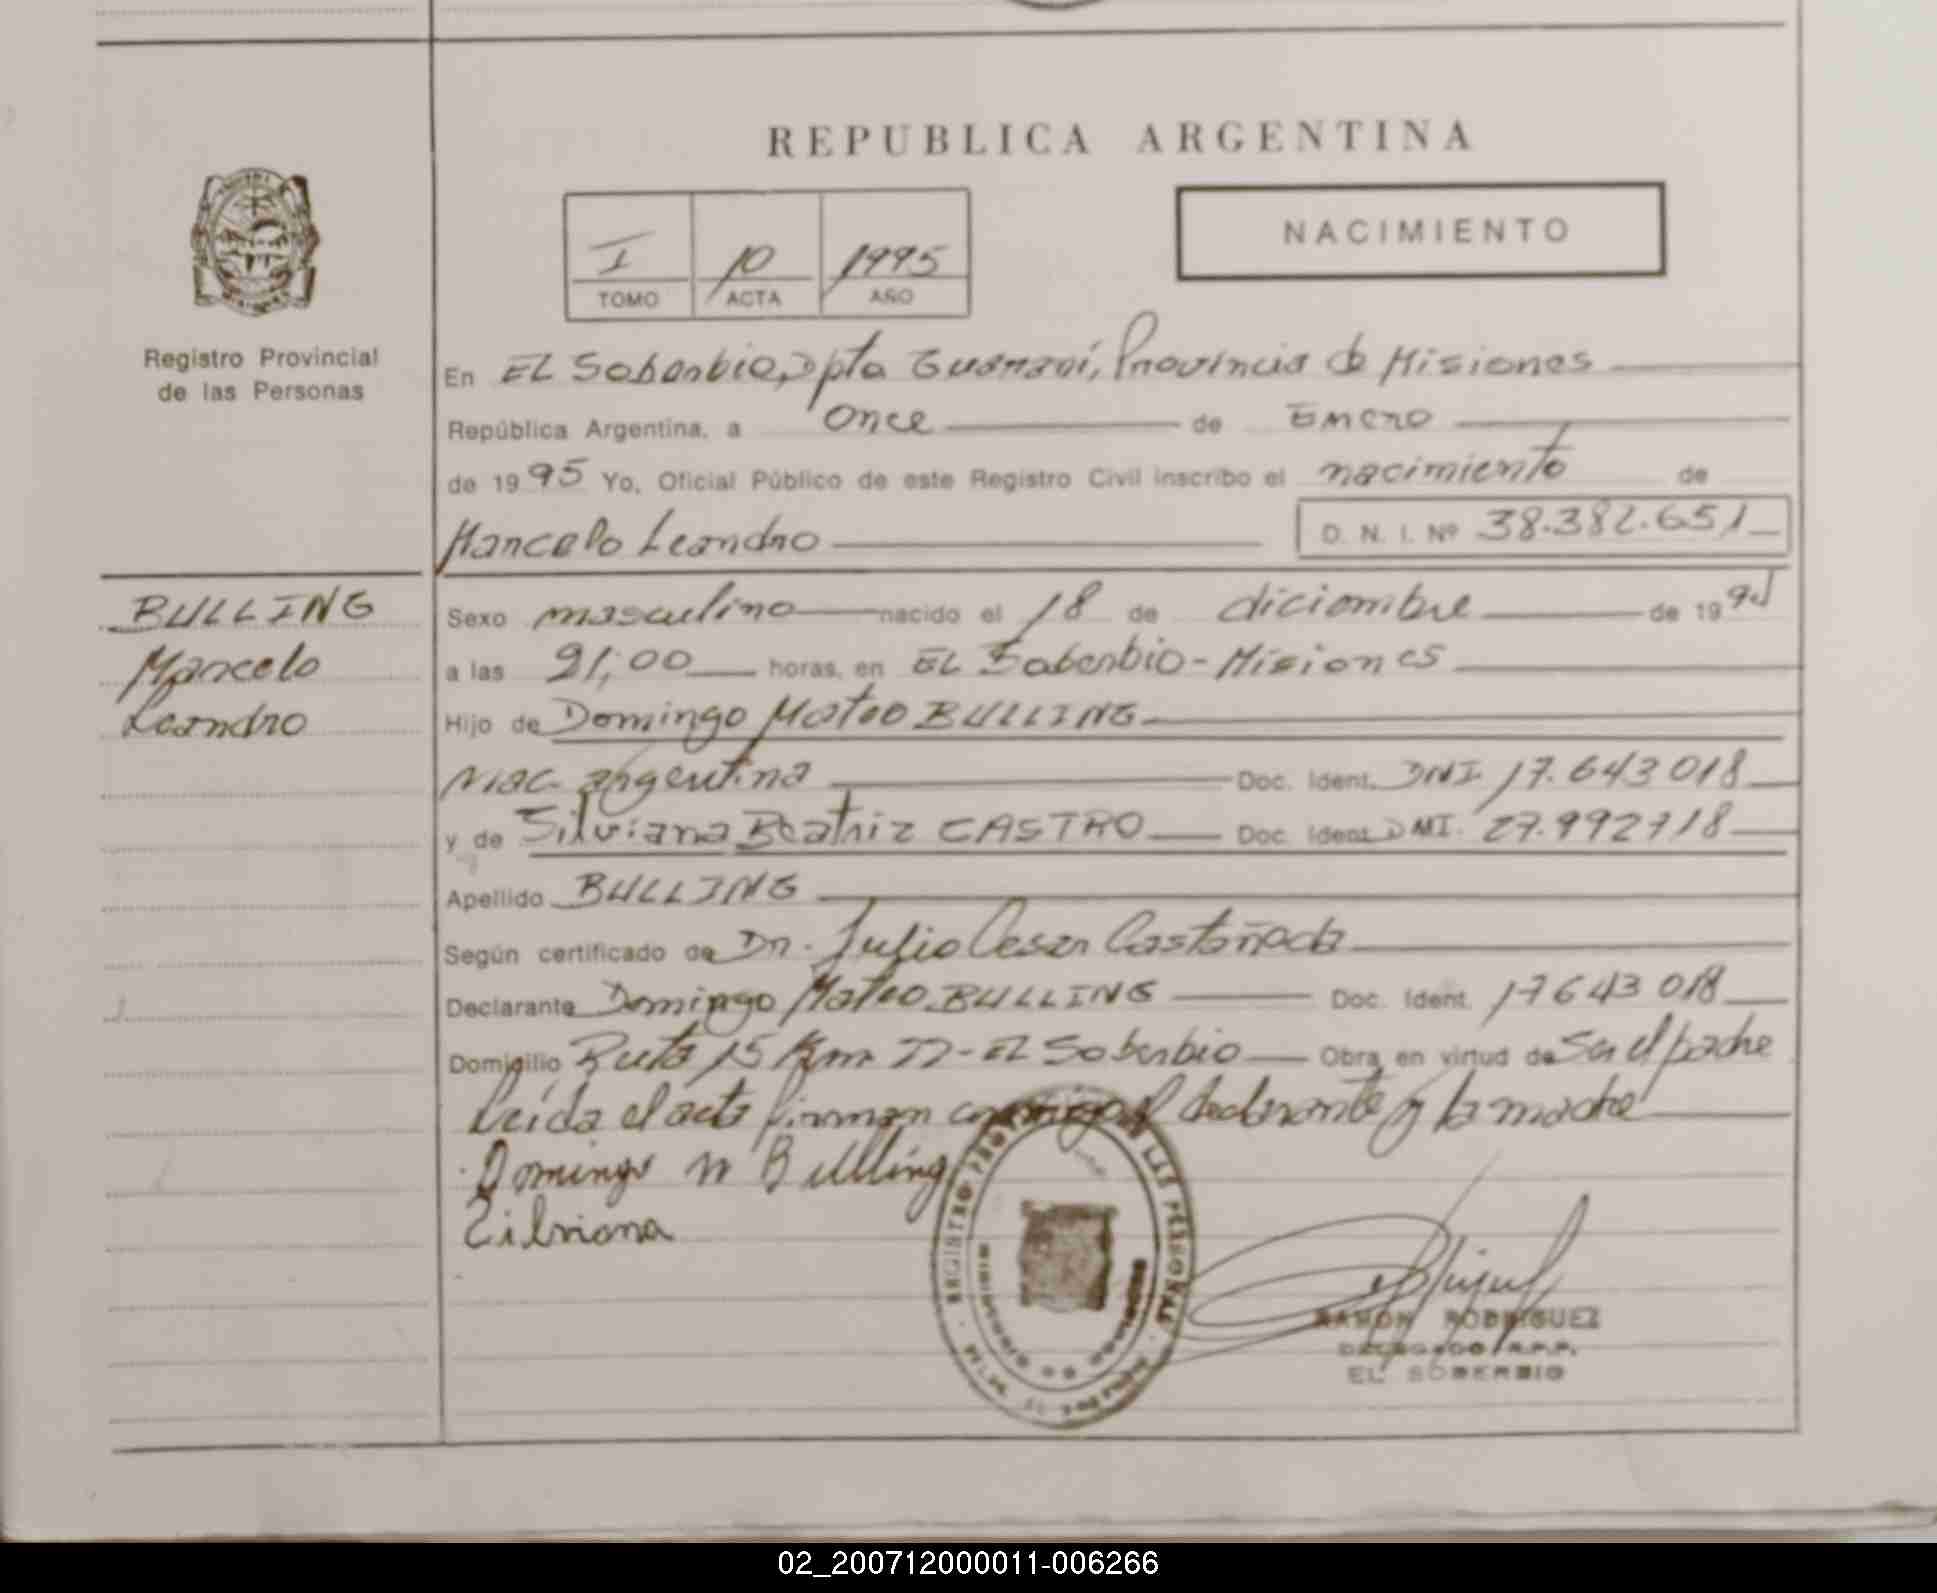 REPUBLICA ARGENTINA
NACIMIENTO
I 10 1995
TOMO ACTA AÑO
Registro Provincial
de las Personas
En EL Soberbio, Dpto Guaraní, Provincia de Misiones
República Argentina, a Once de Enero
de 1995 Yo, Oficial Público de este Registro Civil inscribo el nacimiento de
Marcelo Leandro D. N. I. Nº 38.382.651
BULLING
Marcelo
Leandro
Sexo masculino nacido el 18 de diciembre de 199
a las 21,00 horas, en EL Soberbio - Misiones
Hijo de Domingo Mateo BULLING
Nac. argentina Doc. Ident. DNI 17.643018
y de Silviana Beatriz CASTRO Doc. Ident. DNI. 27.992718
Apellido BULLING
Según certificado de Dr. Julio Cesar Castañada
Declarante Domingo Mateo BULLING Doc. Ident. 17643018
Domicilio Ruta 15 Km 22 - EL Soberbio Obra en virtud de Ser el padre
Leída el acta firman conmigo el declarante y la madre
Domingo M Bullling
Zilviana
REGISTRO PROVINCIAL DE LAS PERSONAS
RAMON RODRIGUEZ
DELEGADO R.P.P.
EL SOBERBIO
02_200712000011-006266